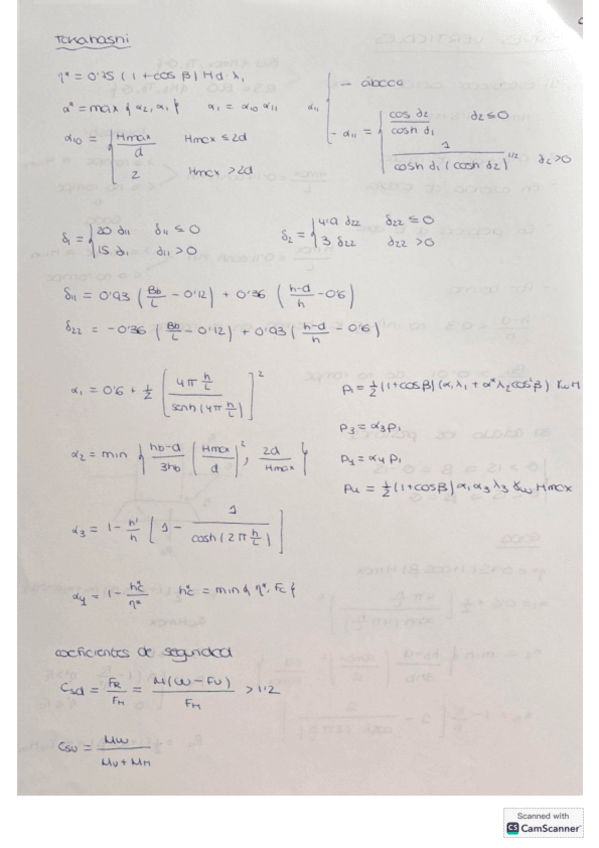 Takahashi
η* = 0'75 (1 + cos β) Hd · λ₁
α* = max { α₂, α₁ }   α₁ = α₁₀ α₁₁   α₁₁ { - ábaco
- α₁₁ = { cos d₂ / cosh d₁   d₂ ≤ 0
1 / cosh d₁ (cosh d₂)^1/2   d₂ > 0
α₁₀ = { Hmax / d   Hmax ≤ 2d
2   Hmax > 2d
δ₁ = { 20 δ₁₁   δ₁₁ ≤ 0
15 δ₁₁   δ₁₁ > 0
δ₂ = { 4'9 δ₂₂   δ₂₂ ≤ 0
3 δ₂₂   δ₂₂ > 0
δ₁₁ = 0'93 (Bb/L - 0'12) + 0'36 (h-d/h - 0'6)
δ₂₂ = -0'36 (Bb/L - 0'12) + 0'93 (h-d/h - 0'6)
α₁ = 0'6 + ½ [4π h/L / senh (4π h/L)]²
P₁ = ½ (1 + cos β) (α₁ λ₁ + α* λ₂ cos² β) γw H
P₃ = α₃ P₁
α₂ = min { hb-d / 3hb (Hmax / d)², 2d / Hmax }
P₄ = α₄ P₁
Pu = ½ (1 + cos β) α₁ α₃ λ₃ γw Hmax
α₃ = 1 - h'/h [1 - 1 / cosh (2π h/L)]
α₄ = 1 - hc* / η*   hc* = min { η*, Fc }
coeficientes de seguridad
Csd = FR / FH = μ(W - Fu) / FH > 1'2
Csv = Mw / Mu + MH
Scanned with
CS CamScanner